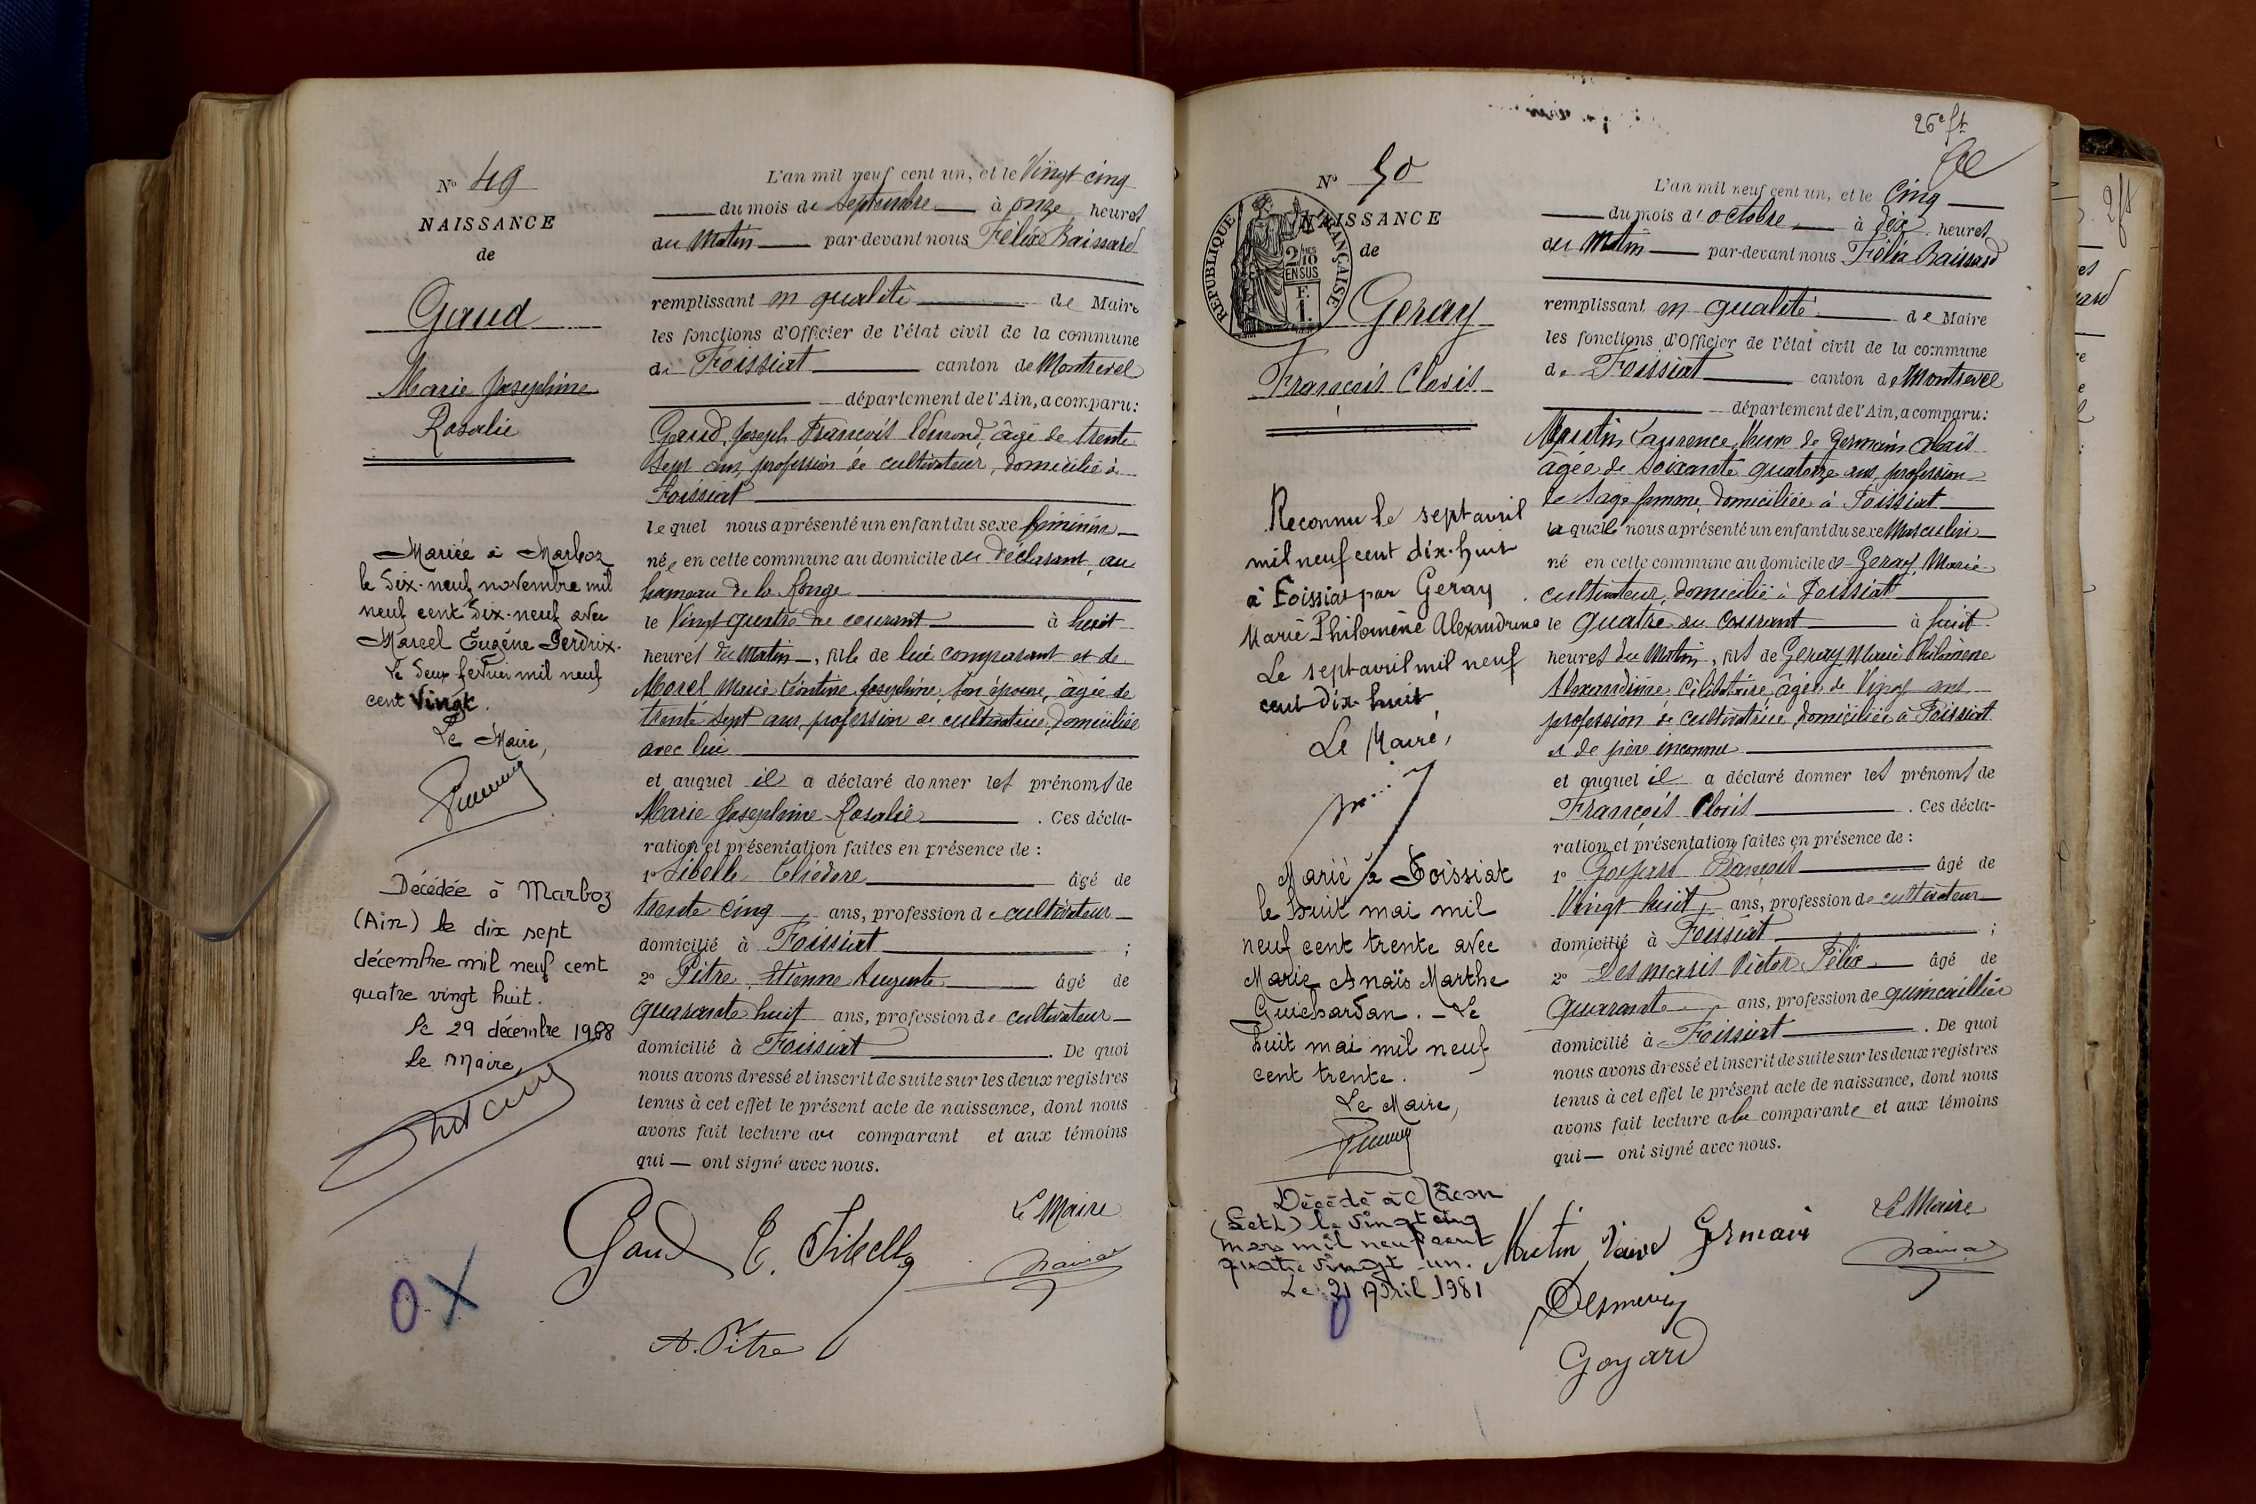 Nº 49
NAISSANCE
de
Gaud
Marie Joséphine
Rosalie
Mariée à Marboz
le dix-neuf novembre mil
neuf cent dix-neuf avec
Marcel Eugène Perdrix.
Le deux février mil neuf
cent vingt.
Le Maire,
Décédée à Marboz
(Ain) le dix sept
décembre mil neuf cent
quatre vingt huit.
Le 29 décembre 1988
le Maire,
L'an mil neuf cent un, et le Vingt cinq
du mois de Septembre à onze heures
du Matin par-devant nous Félix
remplissant en qualité de Maire
les fonctions d'Officier de l'état civil de la commune
de Foissiat canton de Montrevel
département de l'Ain, a comparu :
Gaud, Joseph François Edmond, âgé de trente
sept ans, profession de cultivateur, domicilié à
Foissiat
lequel nous a présenté un enfant du sexe féminin
née en cette commune au domicile du déclarant, au
hameau de la Ronge
le Vingt quatre du courant à huit
heures du Matin, fille de lui comparant et de
Morel Marie Léontine Joséphine, son épouse, âgée de
trente sept ans, profession de cultivatrice, domiciliée
avec lui
et auquel il a déclaré donner les prénoms de
Marie Joséphine Rosalie. Ces décla-
ration et présentation faites en présence de :
1º Sibelle âgé de
trente cinq ans, profession de cultivateur
domicilié à Foissiat ;
2º Pitre, Etienne Auguste âgé de
quarante huit ans, profession de cultivateur
domicilié à Foissiat. De quoi
nous avons dressé et inscrit de suite sur les deux registres
tenus à cet effet le présent acte de naissance, dont nous
avons fait lecture au comparant et aux témoins
qui — ont signé avec nous.
Le Maire
Gaud E. Sibelle
A. Pitre
OX
26e ft
Nº 50
NAISSANCE
de
RÉPUBLIQUE FRANÇAISE
2/10
EN SUS
F.
1.
Geray
François Clovis
Reconnu le sept avril
mil neuf cent dix-huit
à Foissiat par Geray
Marie Philomène Alexandrine
Le sept avril mil neuf
cent dix-huit
Le Maire,
Marié à Foissiat
le huit mai mil
neuf cent trente avec
Marie Anaïs Marthe
Guichardan. - Le
huit mai mil neuf
cent trente.
Le Maire,
Décédé à Mâcon
(S et L) le vingt cinq
mars mil neuf cent
quatre vingt-un.
Le 21 Avril 1981
L'an mil neuf cent un, et le Cinq
du mois d'octobre à dix heures
du Matin par-devant nous Félix
remplissant en qualité de Maire
les fonctions d'Officier de l'état civil de la commune
de Foissiat canton de Montrevel
département de l'Ain, a comparu :
Martin Laurence, Veuve de Germain
âgée de soixante quatorze ans, profession
de sage femme, domiciliée à Foissiat
laquelle nous a présenté un enfant du sexe Masculin
né en cette commune au domicile de Geray, Marie
cultivateur, domicilié à Foissiat
le quatre du courant à huit
heures du Matin, fils de Geray Marie Philomène
Alexandrine, Célibataire, âgée de Vingt ans
profession de cultivatrice, domiciliée à Foissiat
et de père inconnu
et auquel il a déclaré donner les prénoms de
François Clovis. Ces décla-
ration et présentation faites en présence de :
1º Goyard François âgé de
Vingt huit, ans, profession de cultivateur
domicilié à Foissiat ;
2º Desmaris Victor Félix âgé de
quarante ans, profession de quincaillier
domicilié à Foissiat. De quoi
nous avons dressé et inscrit de suite sur les deux registres
tenus à cet effet le présent acte de naissance, dont nous
avons fait lecture à la comparante et aux témoins
qui — ont signé avec nous.
Le Maire
Martin Veuve Germain
Goyard